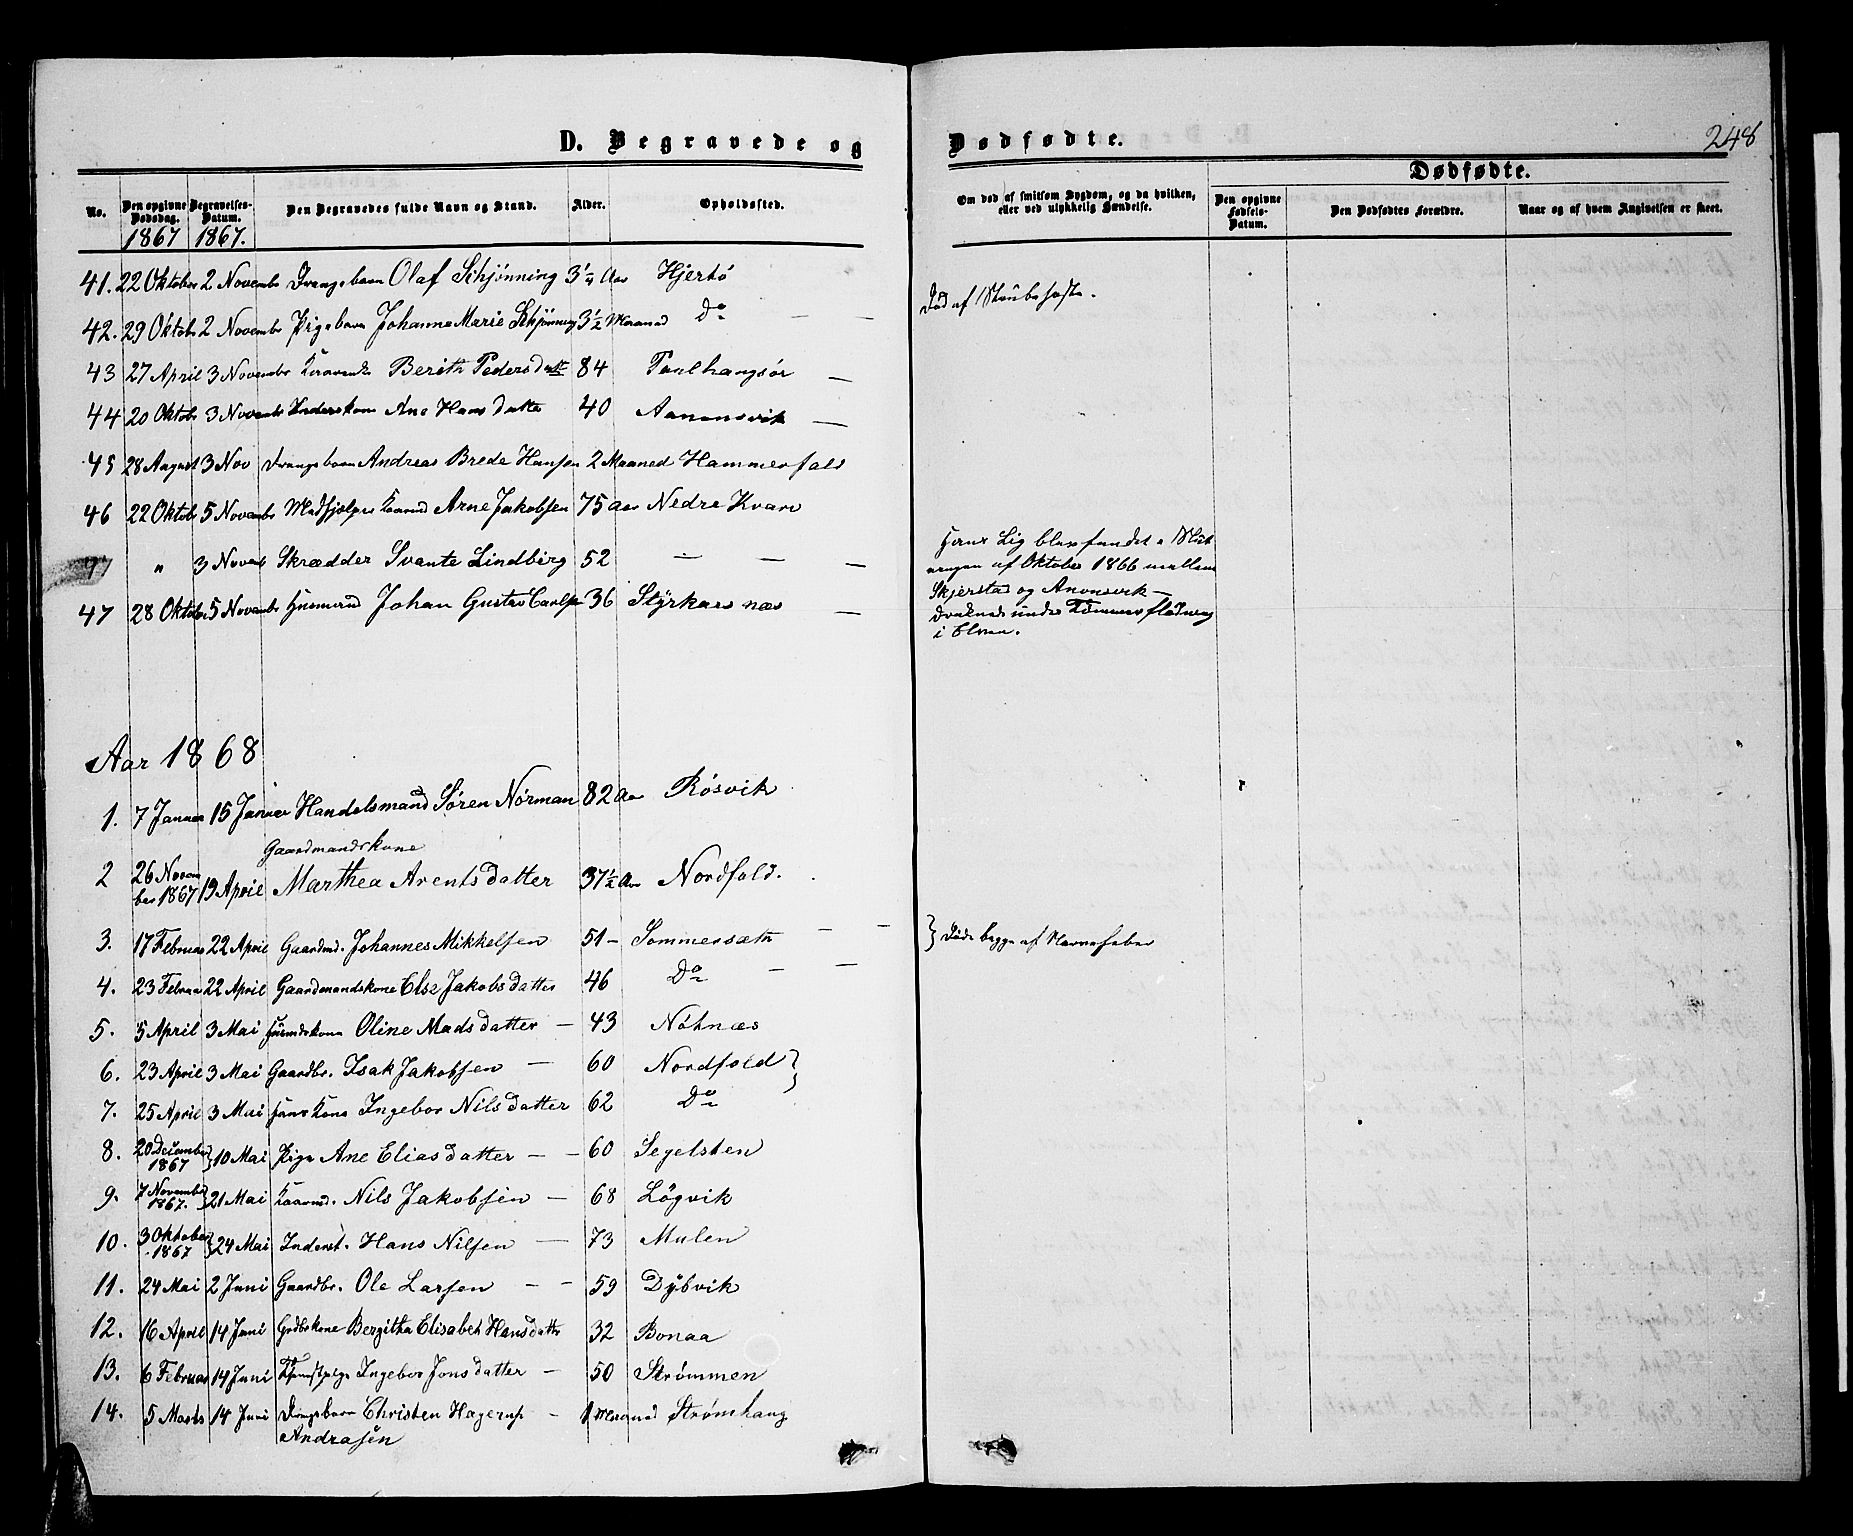 D. Begravede og
Dødfødte.
248
Dødfødte.
No.
Den opgivne Dødsdag. 1867
Begravelses-Datum. 1867.
Den Begravedes fulde Navn og Stand.
Alder.
Opholdssted.
Om død af smitsom Sygdom, og da hvilken, eller ved ulykkelig Hændelse.
Den opgivne Fødsels-Datum.
Den Dødfødtes Forældre.
Naar og af hvem Angivelsen er skeet.
41. 22 Oktober 2 Novembr Drengebarn Olaf Schjønning 3 1/4 Aar Hjertø
Død af Strubehoste.
42. 29 Oktobr 2 Novembr Pigebarn Johanne Marie Schjønning 3 1/2 Maaned Do — —
43 27 April 3 Novembr Berith Pedersdatt 84 —
44 20 Oktobr 3 Novembr Inderskone Ane Hansdatter 40 Aanonsvik —
45 28 August 3 Nov Drengebarn Andreas Brede Hansen 2 Maaned Hammerfald
46 22 Oktobr 5 Novembr Arne Jakobsen 75 Aar Nedre Kvarv
" 3 Novemb Skrædder Svante Lindberg 52 — — —
Hans Lig blev fundet i Slut-
ningen af Oktober 1866 mellem
Skjerstad og Anonsvik —
druknede under Tømmerflødning
i Elven.
47 28 Oktober 5 Novembr Husmand Johan Gustav Carlsen 36 Styrkesnæs —
Aar 1868
1. 7 Januar 15 Januar Handelsmand Søren Norman 82 Aar Røsvik
Gaardmandskone
2 26 Novem-
ber 1867 19 April Marthea Arentsdatter 37 1/2 Aar Nordfold.
3. 17 Februar 22 April Gaardmd. Johannes Mikkelsen 51 — Sommersæth — —
} Døde begge af Nervefeber
4. 23 Februar 22 April Gaardmandskone Else Jakobsdatter 46 Do — —
5. 5 April 3 Mai Husmdskone Oline Madsdatter — 43 Nøhnæs
6. 23 April 3 Mai Gaardbr. Isak Jakobsen — 60 Nordfold }
7. 25 April 3 Mai Hans Kone Ingebor Nilsdatter 62 Do
8. 20 December
1867 } 10 Mai Pige Ane Eliasdatter — — 60 Segelsten
9. 7 November
1867. } 21 Mai Kaarmd. Nils Jakobsen — 68 Løgvik
10. 3 Oktober
1867 } 24 Mai Inderst. Hans Nilsen — 73 Mulen
11. 24 Mai 2 Juni Gaardbr. Ole Larsen — — 59 Dybvik
12. 16 April 14 Juni Grdbrkone Bergitha Elisabeth Hansdattr 32 Bonaa
13. 6 Februar 14 Juni Tjenestpige Ingebor Jonsdatter — 50 Strømmen
14. 5 Marts 14 Juni Drengebarn Christen Hagerup — 1 Maaned Strømhaug
Andrasen